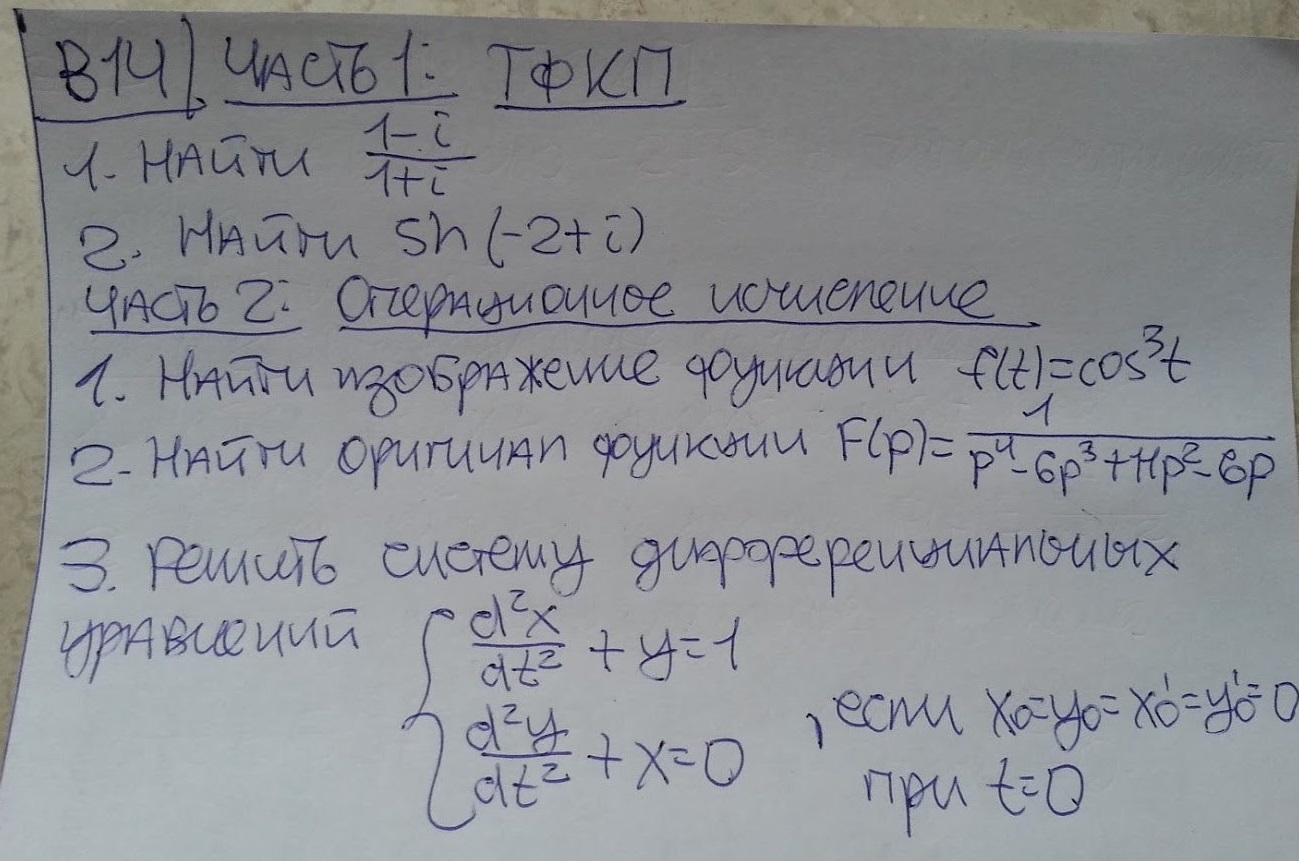 В14) ЧАСТЬ 1: ТФКП
1. НАЙТИ (1-i)/(1+i)
2. НАЙТИ sh(-2+i)
ЧАСТЬ 2: ОПЕРАЦИОННОЕ ИСЧИСЛЕНИЕ
1. НАЙТИ изОБРАЖЕНИЕ функции f(t)=cos³t
2. НАЙТИ ОРИГИНАЛ функции F(p)= 1/(p⁴-6p³+11p²-6p)
3. Решить систему дифференциАльных
урАвнений { d²x/dt² + y=1
d²y/dt² + x=0 , если x₀=y₀=x₀'=y₀'=0
при t=0